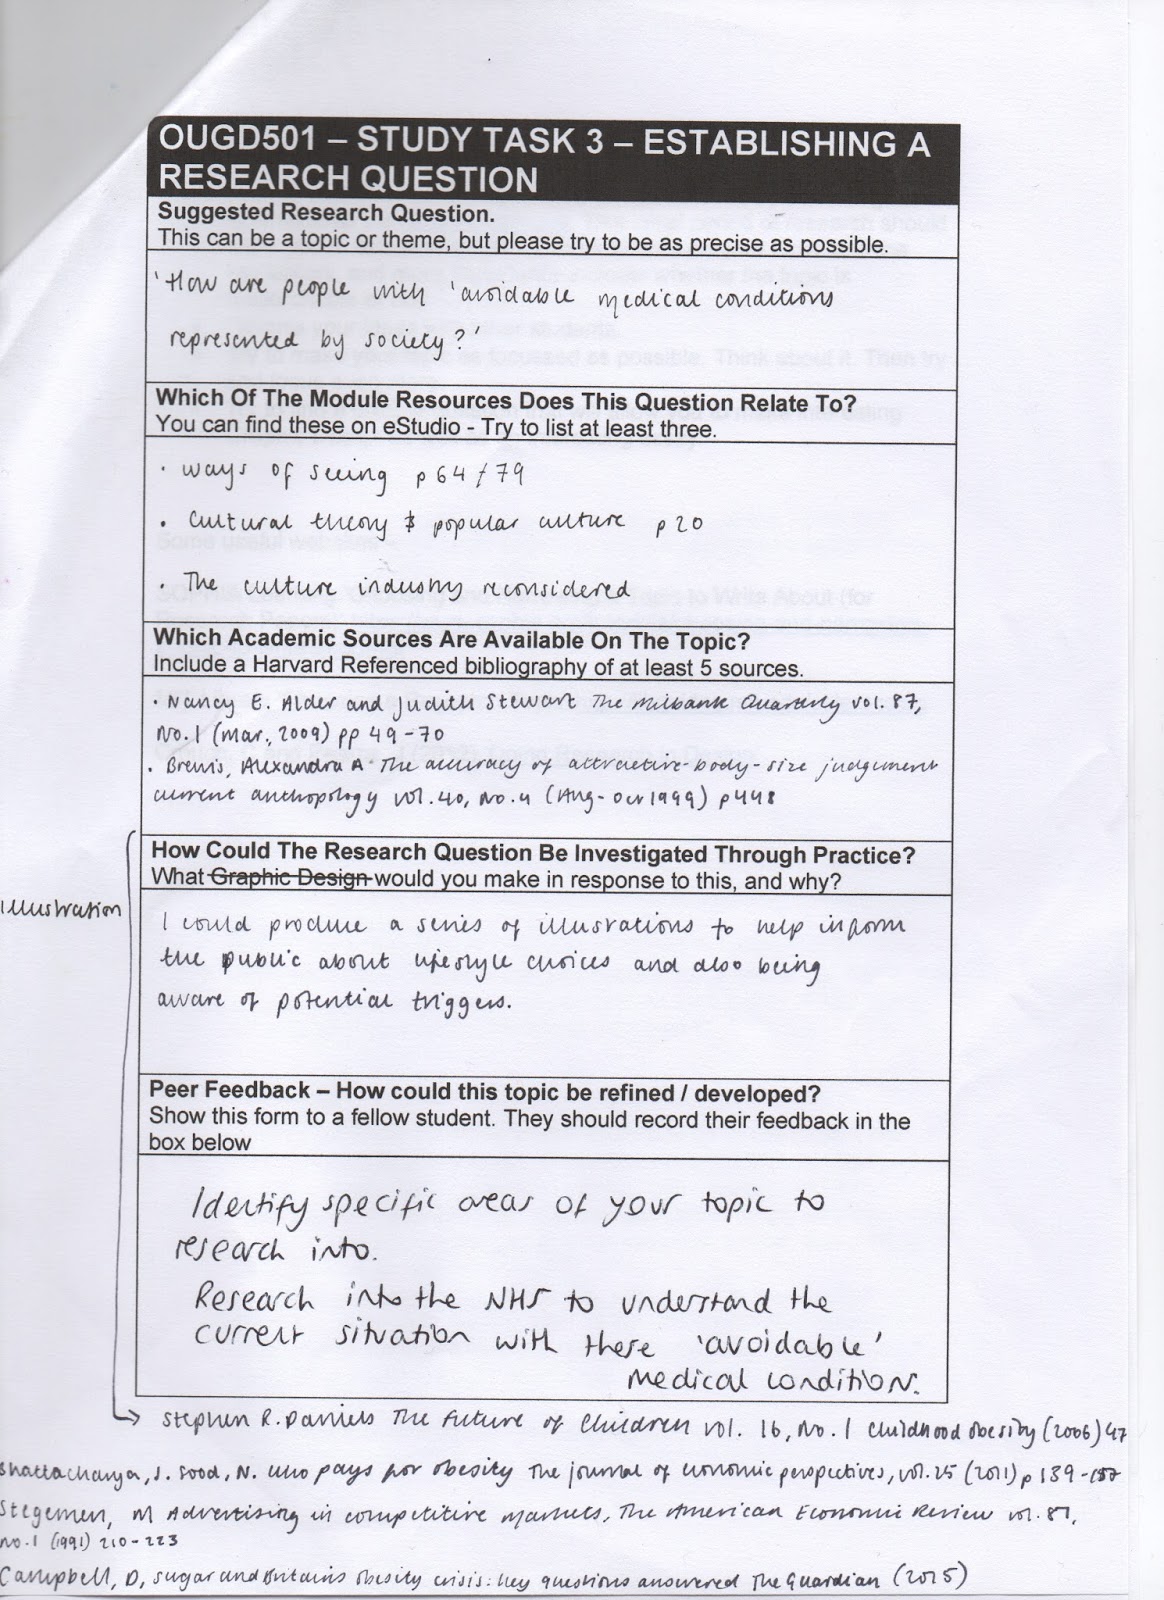 OUGD501 – STUDY TASK 3 – ESTABLISHING A
RESEARCH QUESTION
Suggested Research Question.
This can be a topic or theme, but please try to be as precise as possible.
'How are people with 'avoidable medical conditions
represented by society?'
Which Of The Module Resources Does This Question Relate To?
You can find these on eStudio - Try to list at least three.
· Ways of seeing p64/79
· Cultural theory & popular culture p20
· The culture industry reconsidered
Which Academic Sources Are Available On The Topic?
Include a Harvard Referenced bibliography of at least 5 sources.
· Nancy E. Alder and Judith Stewart The Milbank Quarterly vol. 87,
No.1 (Mar., 2009) pp 49-70
· Brewis, Alexandra A. The accuracy of attractive-body-size judgement
current anthropology vol.40, No.4 (Aug-Oct 1999) p448
How Could The Research Question Be Investigated Through Practice?
What Graphic Design would you make in response to this, and why?
Illustration
I could produce a series of illustrations to help inform
the public about lifestyle choices and also being
aware of potential triggers.
Peer Feedback – How could this topic be refined / developed?
Show this form to a fellow student. They should record their feedback in the
box below
Identify specific areas of your topic to
research into.
Research into the NHS to understand the
current situation with these 'avoidable'
medical condition.
Stephen R. Daniels The Future of Children vol. 16, No. 1 Childhood obesity (2006) 47
Bhattacharya, J. Sood, N. who pays for obesity The journal of economic perspectives, vol.25 (2011) p 139-157
Stegemen, M Advertising in competitive markets, The American Economic Review vol. 81,
no.1 (1991) 210-223
Campbell, D, sugar and Britains obesity crisis: key questions answered The Guardian (2015)